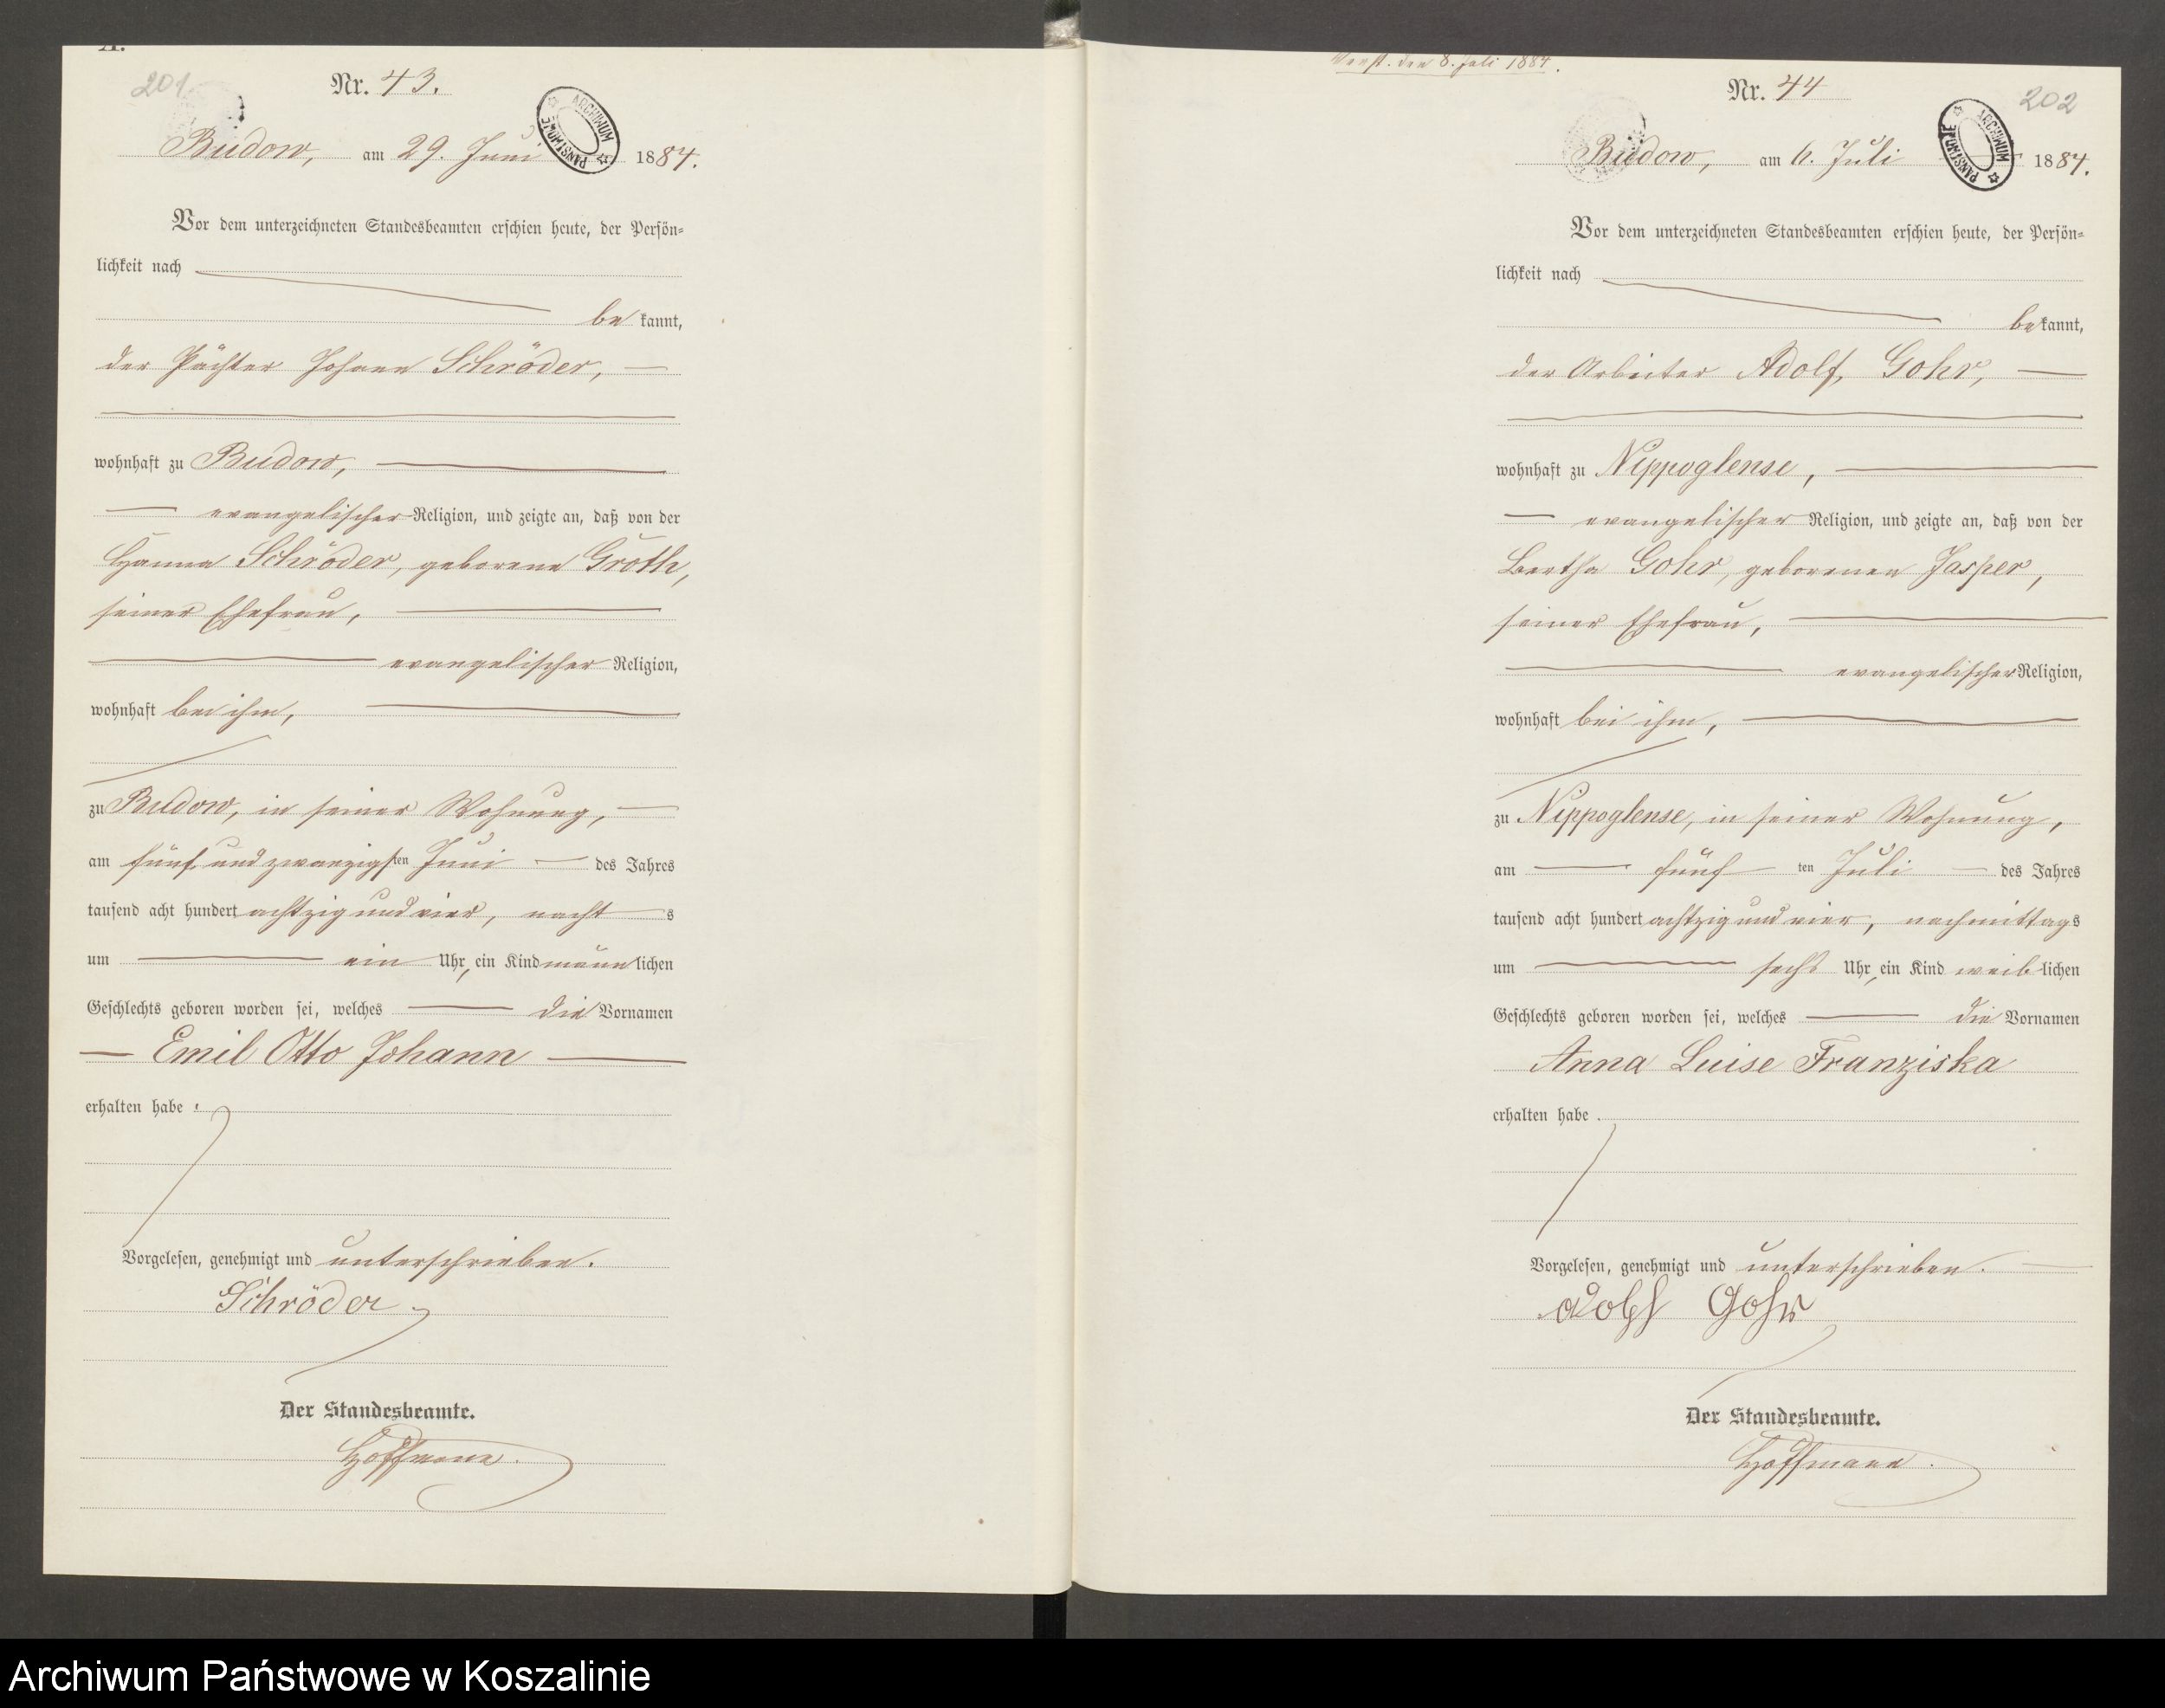 A.
201
Nr. 43.
ARCHIWUM PAŃSTWOWE
Budow, am 29. Juni 1884.
Vor dem unterzeichneten Standesbeamten erschien heute, der Persön-
lichkeit nach
bekannt,
der Pächter Johann Schröder,
wohnhaft zu Budow,
evangelischer Religion, und zeigte an, daß von der
Hanna Schröder, geborene Groth,
seiner Ehefrau,
evangelischer Religion,
wohnhaft bei ihm,
zu Budow, in seiner Wohnung,
am fünf und zwanzigsten Juni des Jahres
tausend acht hundert achtzig und vier, nachts
um ein Uhr, ein Kind männlichen
Geschlechts geboren worden sei, welches die Vornamen
Emil Otto Johann
erhalten habe.
Vorgelesen, genehmigt und unterschrieben.
Schröder
Der Standesbeamte.
Hoffmann.
den 8. Juli 1884.
Nr. 44
202
ARCHIWUM PAŃSTWOWE
Budow, am 6. Juli 1884.
Vor dem unterzeichneten Standesbeamten erschien heute, der Persön-
lichkeit nach
bekannt,
der Arbeiter Adolf Gohr,
wohnhaft zu Nippoglense,
evangelischer Religion, und zeigte an, daß von der
Bertha Gohr, geborenen Jasper,
seiner Ehefrau,
evangelischer Religion,
wohnhaft bei ihm,
zu Nippoglense, in seiner Wohnung,
am fünften Juli des Jahres
tausend acht hundert achtzig und vier, nachmittags
um sechs Uhr, ein Kind weiblichen
Geschlechts geboren worden sei, welches die Vornamen
Anna Luise Franziska
erhalten habe.
Vorgelesen, genehmigt und unterschrieben.
Adolf Gohr
Der Standesbeamte.
Hoffmann.
Archiwum Państwowe w Koszalinie